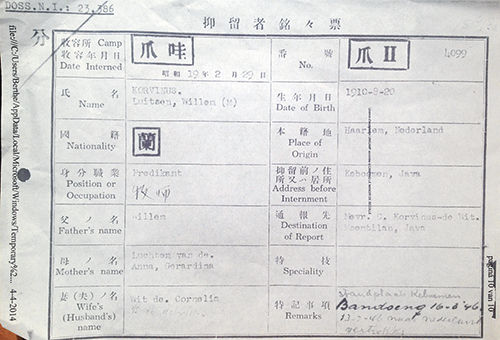 DOSS.N.I.: 23,386
抑留者銘々票
分
收容所 Camp
收容年月日
Date Interned
爪哇
昭和 19 年 2 月 29 日
番號
No.
爪 II
4099
氏名
Name
KORVINUS.
Luitsen, Willem (M)
生年月日
Date of Birth
1910-8-20
國籍
Nationality
蘭
本籍地
Place of
Origin
Haarlem, Nederland
身分職業
Position or
Occupation
Predikant
牧師
抑留前ノ住
所又ハ居所
Address before
Internment
Keboemen, Java
父ノ名
Father's name
Willem
通報先
Destination
of Report
Mevr. C. Korvinus-de Wit.
Moentilan, Java
母ノ名
Mother's name
Luchten van de.
Anna, Gerardina
特技
Speciality
妻(夫)ノ名
Wife's
(Husband's)
name
Wit de. Cornelia
特記事項
Remarks
Standplaats Kebumen
Bandoeng 16-6-'46.
13-7-46 naar Nederland
vertrokken
file:///C:/Users/Benthe/AppData/Local/Microsoft/Windows/Temporary%2... 4-4-2014
pagina 10 van 10